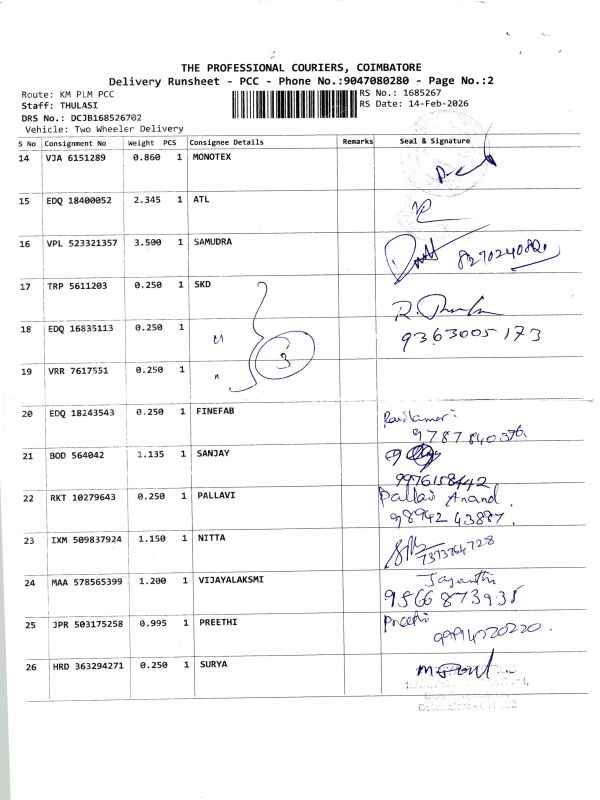 THE PROFESSIONAL COURIERS, COIMBATORE
Delivery Runsheet - PCC - Phone No.:9047080280 - Page No.:2
Route: KM PLM PCC
RS No.: 1685267
Staff: THULASI
RS Date: 14-Feb-2026
DRS No.: DCJB168526702
Vehicle: Two Wheeler Delivery
S No Consignment No Weight PCS Consignee Details Remarks Seal & Signature
14 VJA 6151289 0.860 1 MONOTEX
15 EDQ 18400052 2.345 1 ATL
16 VPL 523321357 3.500 1 SAMUDRA
17 TRP 5611203 0.250 1 SKD
18 EDQ 16835113 0.250 1 " 3 9363005173
19 VRR 7617551 0.250 1 "
20 EDQ 18243543 0.250 1 FINEFAB
21 BOD 564042 1.135 1 SANJAY
9976158442
22 RKT 10279643 0.250 1 PALLAVI Pallavi Anand
98942 43887.
23 IXM 509837924 1.150 1 NITTA
7373764728
24 MAA 578565399 1.200 1 VIJAYALAKSMI Jayanthi
9566873935
25 JPR 503175258 0.995 1 PREETHI Preethi
26 HRD 363294271 0.250 1 SURYA